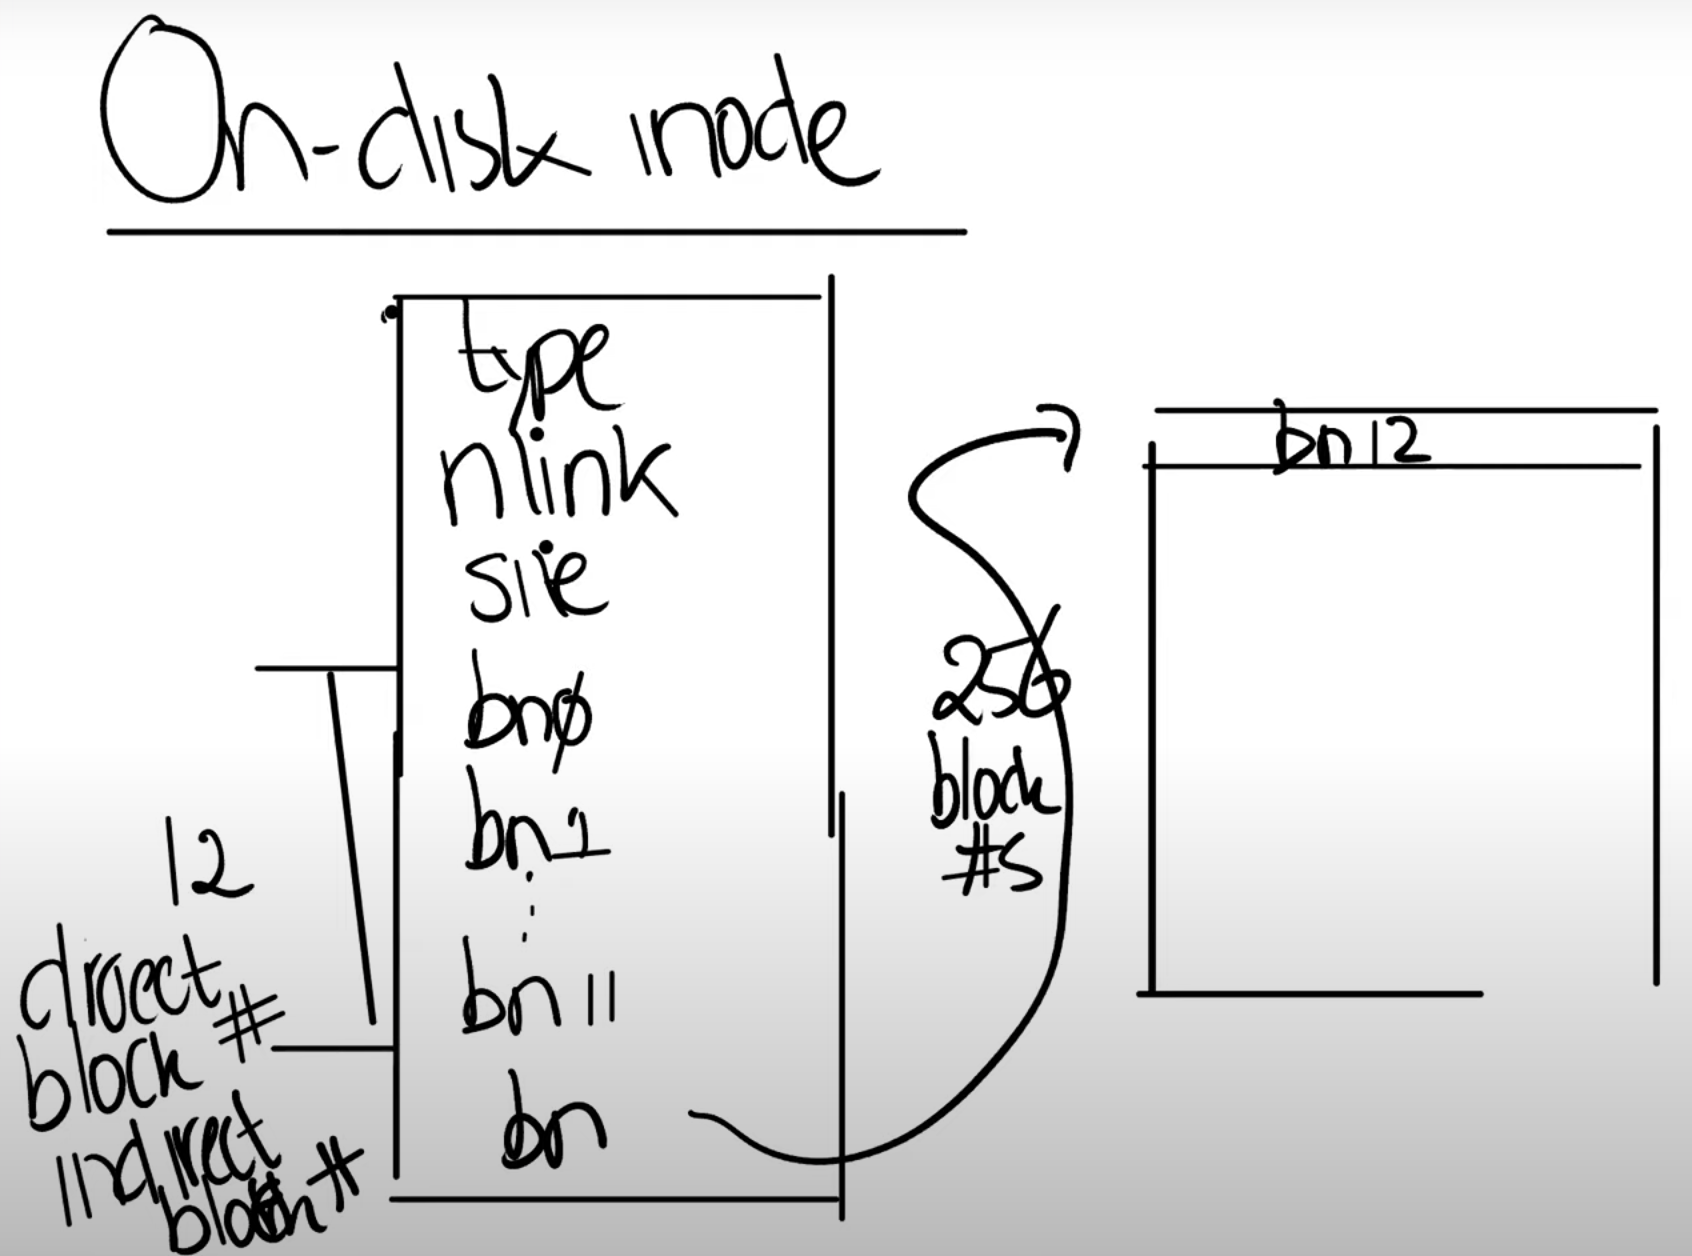 On-disk inode
type
nlink
size
bnø
bn1
bn 11
bn
12
direct
block #
indirect
block #
256
block
#s
bn 12